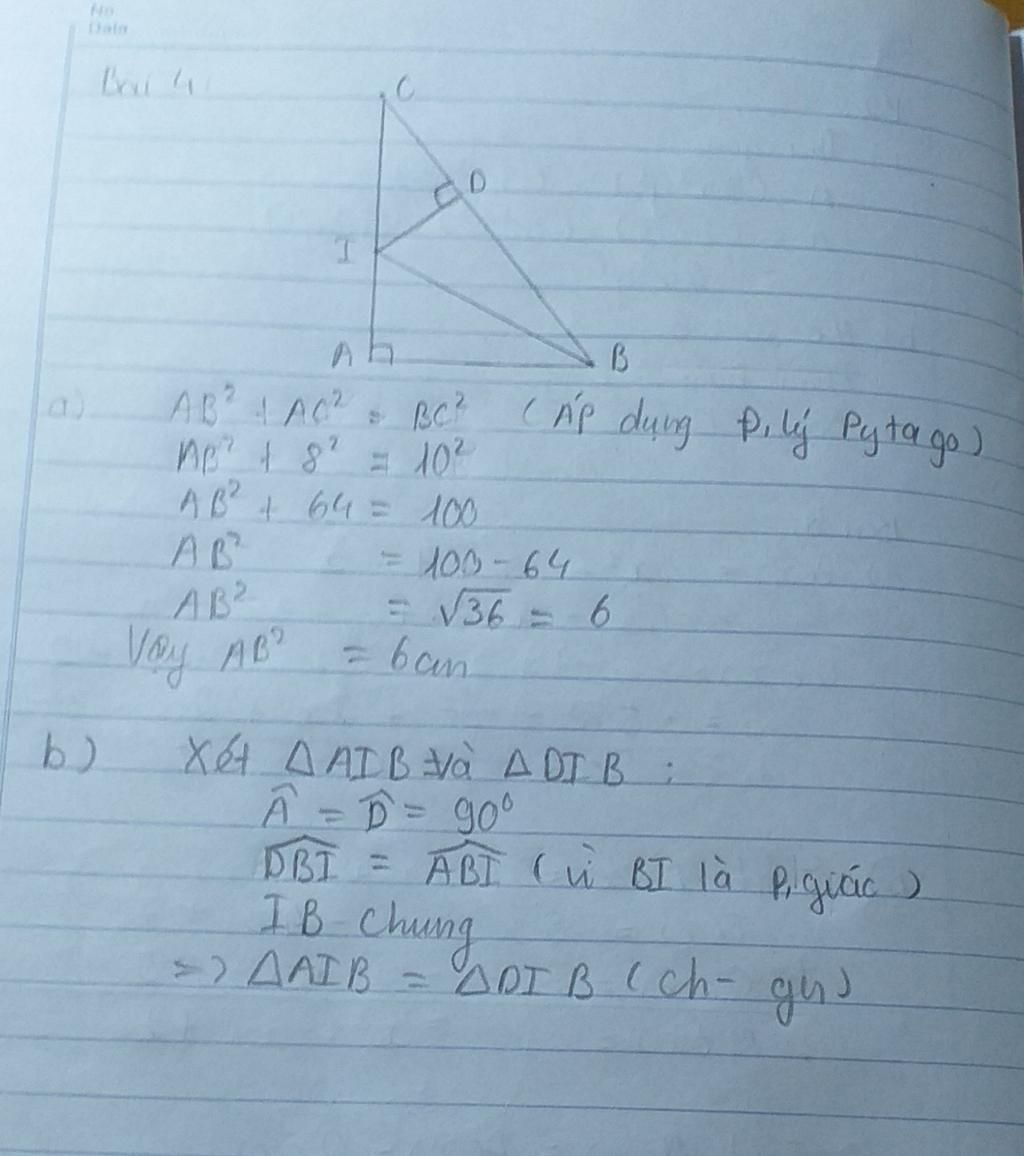 No
Date
Bài 4
C
D
I
A
B
a) AB² + AC² = BC² (Áp dụng Đ, lý Pytago)
AB² + 8² = 10²
AB² + 64 = 100
AB² = 100 - 64
AB² = √36 = 6
Vậy AB² = 6cm
b) Xét ΔAIB và ΔDIB :
Â = D̂ = 90⁰
D̂BI = ÂBI (vì BI là p, giác)
IB chung
=> ΔAIB = ΔDIB (ch - gn)